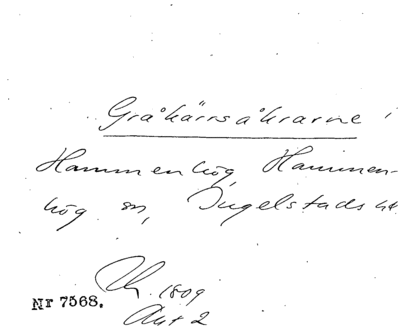 Gråkärrsåkrarne i
Hammenhög, Hammen-
hög sn, Ingelstads hd
1809
Akt 2
Nr 7568.